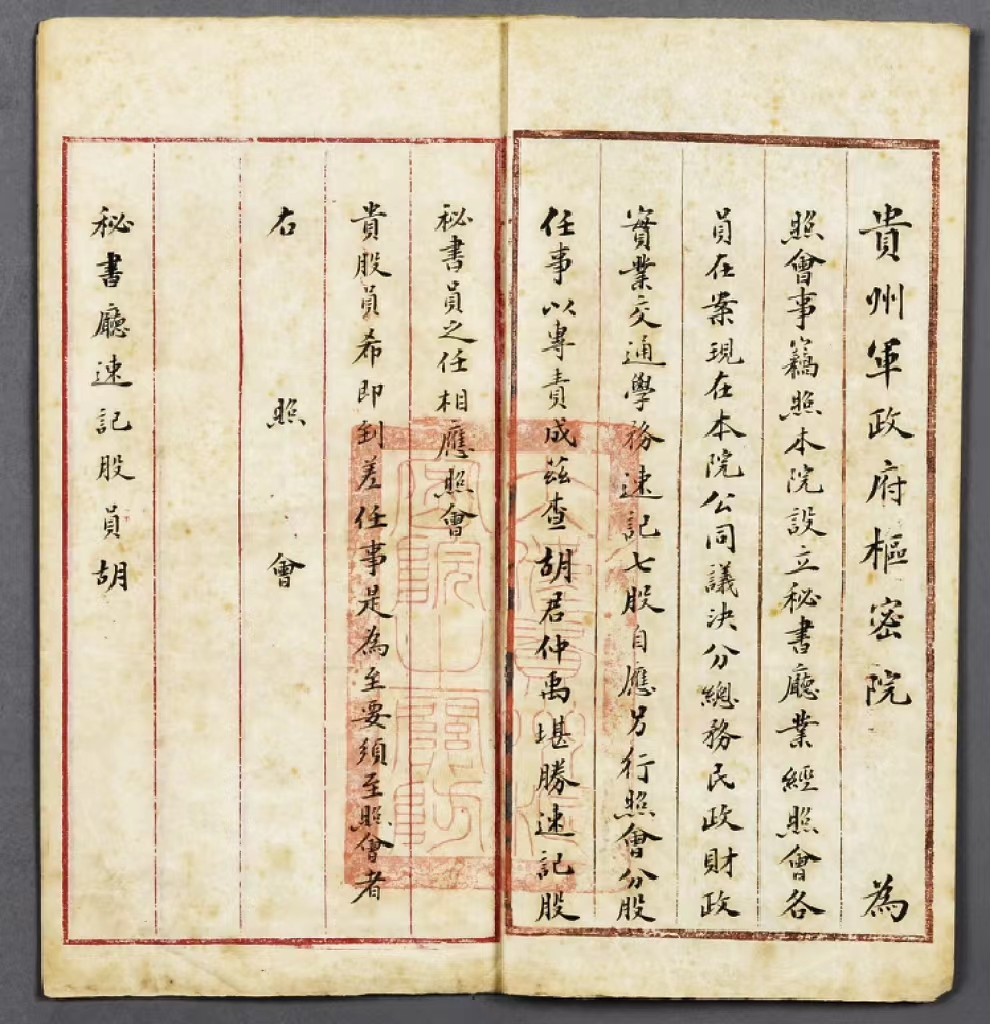 貴州軍政府樞密院　為
照會事竊照本院設立秘書廳業經照會各
員在案現在本院公同議決分總務民政財政
實業交通學務速記七股自應另行照會分股
任事以專責成茲查胡君仲禹堪勝速記股
秘書員之任相應照會
貴股員希即到差任事是為至要須至照會者
右　照　會
秘書廳速記股員胡